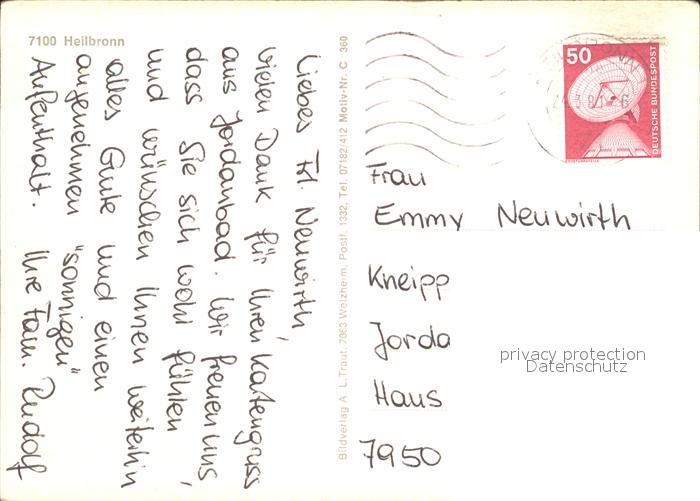 7100 Heilbronn
Liebes Frl. Neuwirth,
vielen Dank für Ihren Kartengruss
aus Jordanbad. Wir freuen uns,
dass Sie sich wohl fühlen
und wünschen Ihnen weiterhin
alles Gute und einen
angenehmen "sonnigen"
Aufenthalt. Ihre Fam. Rudolf
Bildverlag A. L. Traut, 7063 Welzheim, Postf. 1332, Tel. 07182/412 Motiv-Nr. C 360
50
DEUTSCHE BUNDESPOST
Frau
Emmy Neuwirth
Kneipp
Jorda
Haus
7950
privacy protection
Datenschutz